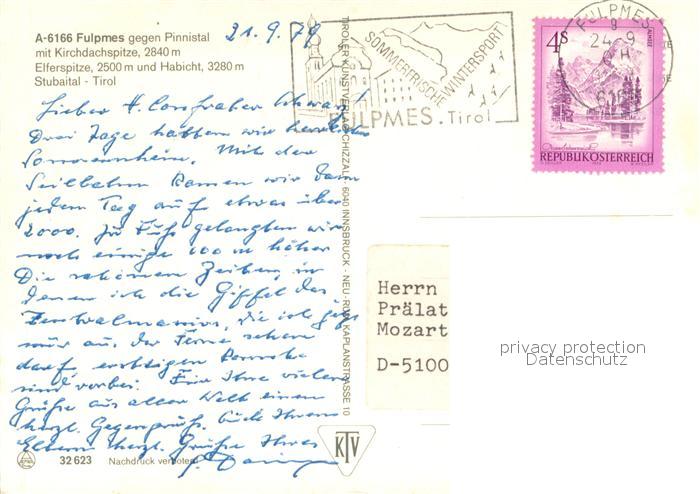 A-6166 Fulpmes gegen Pinnistal
mit Kirchdachspitze, 2840 m
Elferspitze, 2500 m und Habicht, 3280 m
Stubaital - Tirol
21.9.79
Lieber H.
Drei Tage hatten wir herrlichen
Sonnenschein. Mit der
Seilbahn kamen wir dann
jeden Tag auf etwas über
2000. Zu Fuß gelangten wir
noch einige 100 m höher
Die schönen Zeiten, in
denen ich die Gipfel des
Zentralmassivs, die ich jetzt
nur aus der Ferne sehen
darf,
sind vorbei. Für Ihre vielen
Grüße aus aller Welt einen
herzl. Gegengruß. Auch Ihren
Eltern herzl. Grüße Ihres
32 623 Nachdruck verboten
TIROLER KUNSTVERLAG CHIZZALI, 6040 INNSBRUCK - NEU-RUM, KAPLANSTRASSE 10
KTV
SOMMERFRISCHE WINTERSPORT
FULPMES. Tirol
FULPMES
24.-9
616
4S
ALMSEE
REPUBLIK ÖSTERREICH
Herrn
Prälat
Mozart
D-5100
privacy protection
Datenschutz